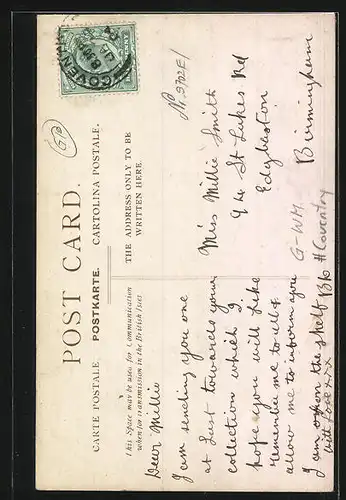 POST CARD.
CARTE POSTALE. POSTKARTE. CARTOLINA POSTALE.
This Space may be used for Communication
when for transmission in the British Isles.
THE ADDRESS ONLY TO BE
WRITTEN HERE.
COVENTRY
Dear Millie
I am sending you one
at Last towards your
collection which I
hope you will like
remember me to all &
allow me to inform you
I am up on the shelf
with love xxx
Miss Millie Smith
St Lukes Rd
Edgbaston
Birmingham
G-WM.
#Coventry